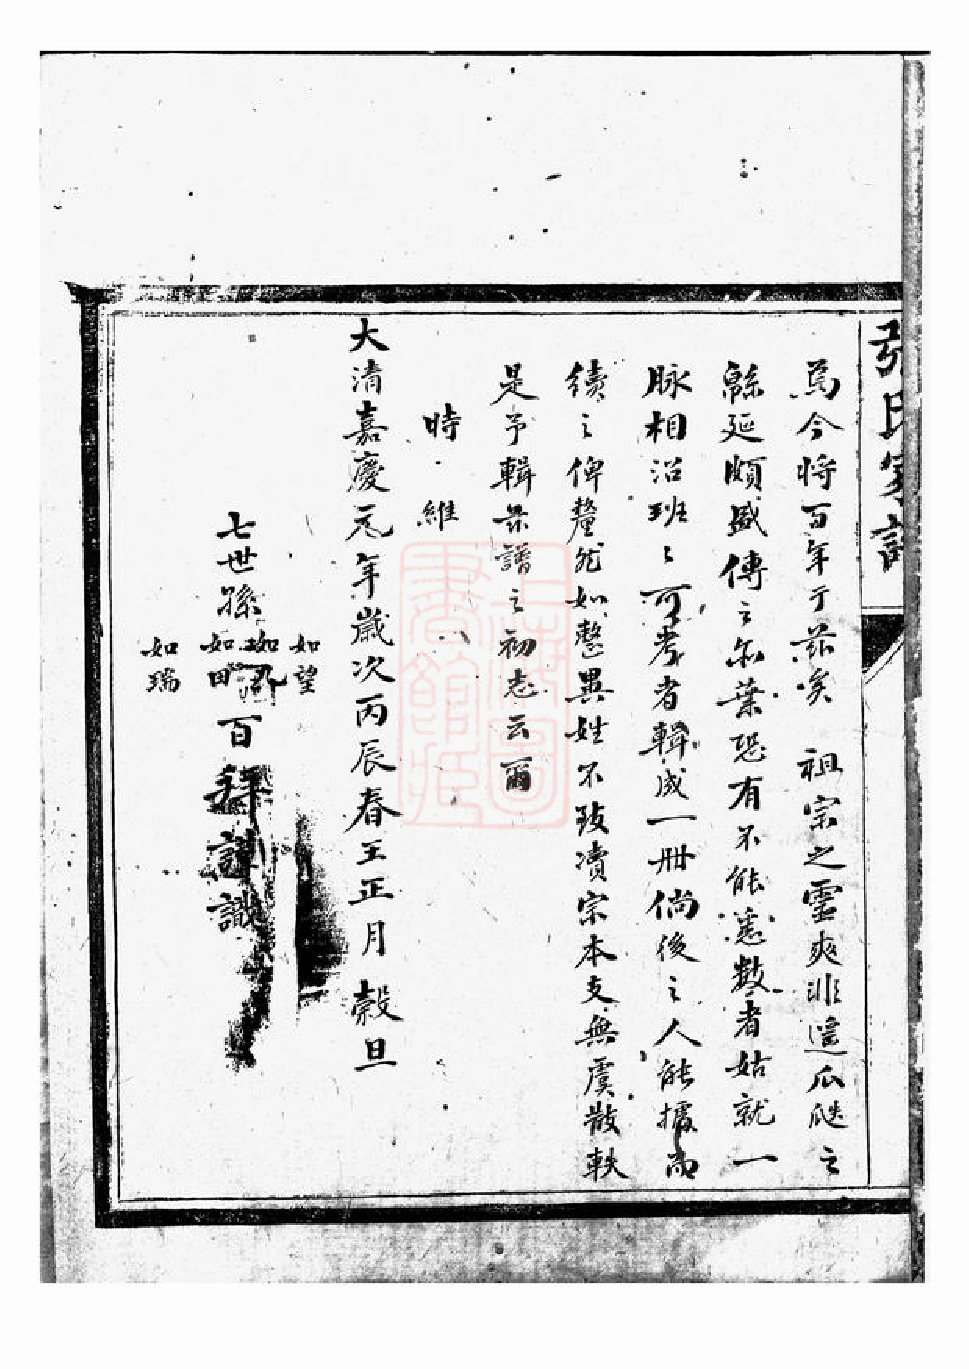 張氏家譜
焉今將百年于茲矣 祖宗之靈爽非遙瓜瓞之
綿延頗盛傳之奕葉恐有不能悉數者姑就一
脉相沿班々可考者輯成一冊倘後之人能據而
續之俾釐然如整異姓不致凟宗本支無虞散軼
是予輯茲譜之初志云爾
時維
大清嘉慶元年歲次丙辰春王正月穀旦
如望
七世孫 如田 百拜謹識
如瑞
上海圖書館藏